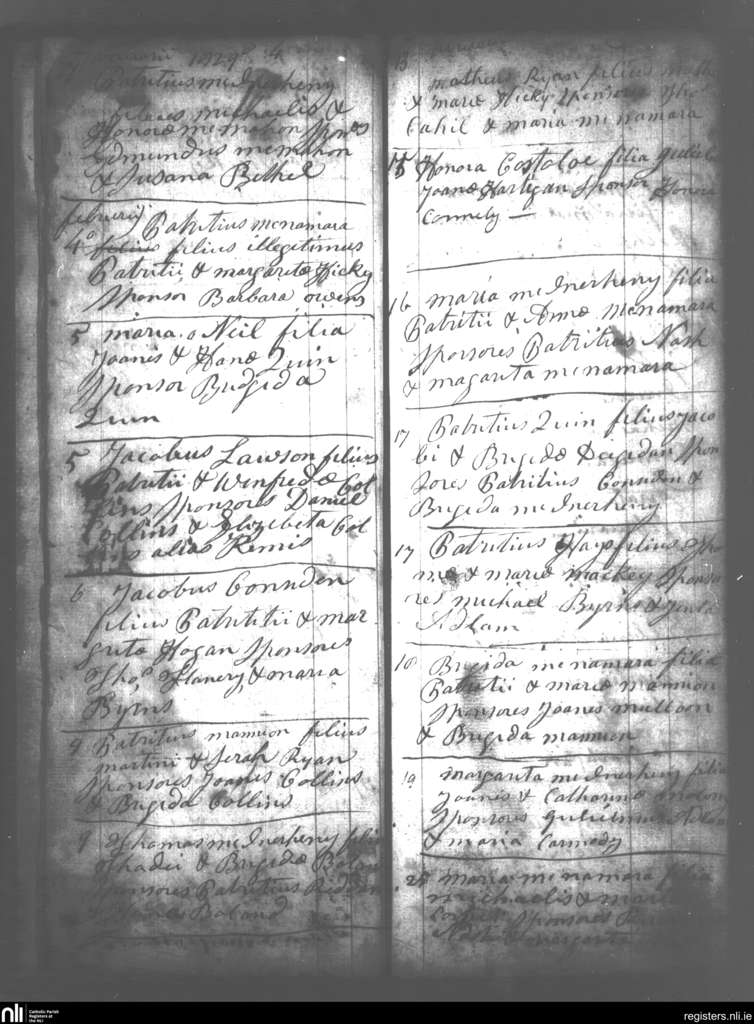 1829
Patritius mcInerheny
filius michaelis &
Honoræ mcmahon spons
Edmundus mcmahon
& Susana Bethel
februerij Patritius mcnamara
4º filius illegitimus
Patritii & margaritæ Hicky
sponsor Barbara owens
5 maria o Neil filia
Joanis & Hanæ Quin
sponsor Brigida
Quin
5 Jacobus Lawson filius
Patritii & Winfredæ Col
lins sponsores Daniel
Collins & Elizebeta Col
lins alias Remis
6 Jacobus Connden
filius Patritii & mar
gritæ Hogan sponsores
Thos Flanery & maria
Byrns
9 Patritius mannion filius
martini & Serah Ryan
sponsores Joanes Collins
& Brigida Collins
9 Thomas mcInerheny filius
Thadei & Brigidæ
sponsores Patritius
Boland
matheus Ryan filius
& mariæ Hicky sponsores Thos
Cahil & maria mcnamara
15 Honora Costoloe filia
Joanæ Hartigan sponsor Honora
Connely
16 maria mcInerheny filia
Patritii & Annæ mcnamara
sponsores Patritius Nash
& magarita mcnamara
17 Patritius Quin filius Jaco
bi & Brigidæ Degidan spon
sores Patritius Connden &
Brigida mcInerheny
17 Patritius Hays filius Tho
mæ & mariæ mackey sponso
res michael Byrns &
Adlam
18 Brigida mcnamara filia
Patritii & mariæ mannion
sponsores Joanes muldoon
& Brigida mannion
19 margarita mcInerheny filia
Joanis & Catharinæ
sponsores Gulielmus Adlam
& maria Carmody
25 maria mcnamara filia
michaelis &
sponsores
nli
Catholic Parish
Registers at
the NLI
registers.nli.ie